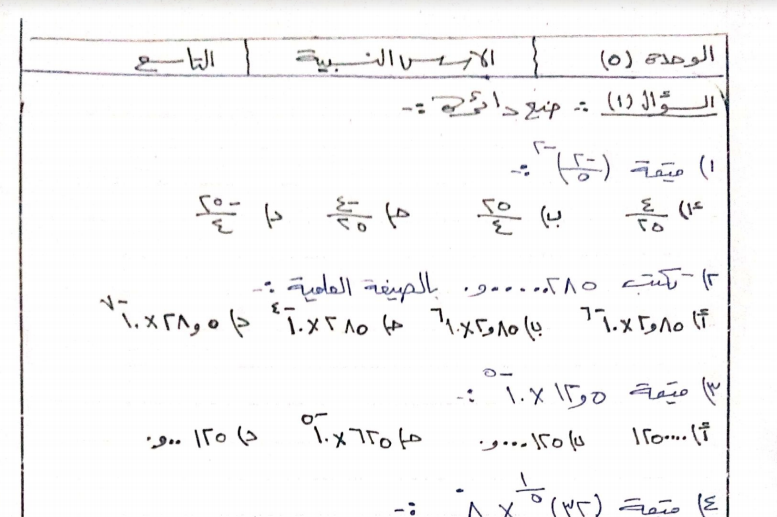 الوحدة (٥) الأسس النسبية التاسع
السؤال (١) :- ضع دائرة :-
١) قيمة (-٢/٥)^-٢ :-
أ) ٤/٢٥ ب) ٢٥/٤ ج) -٤/٢٥ د) -٢٥/٤
٢- تكتب ٢٨٥.....و. بالصيغة العلمية :-
أ) ٨٥و٢ × ١٠^-٦ ب) ٨٥و٢ × ١٠^٦ ج) ٢٨٥ × ١٠^-٤ د) ٥و٢٨ × ١٠^-٧
٣) قيمة ٥و١٢ × ١٠^-٥ :-
أ) ١٢٥.... ب) ١٢٥....و. ج) ٦٢٥ × ١٠^-٥ د) ١٢٥..و.
٤) قيمة (٣٢)^١/٥ × ٨^. :-